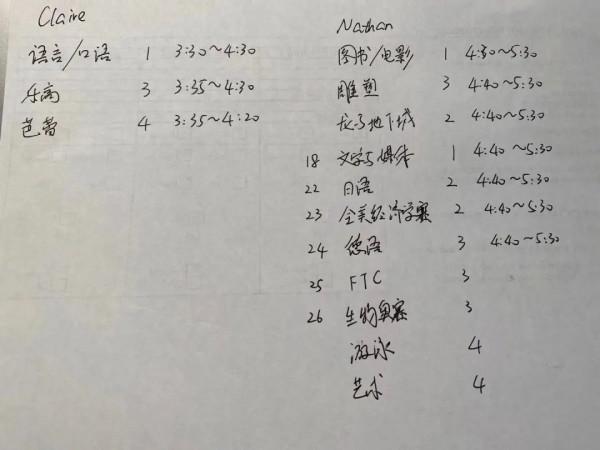 Claire
语言/口语 1 3:30~4:30
乐高 3 3:35~4:30
芭蕾 4 3:35~4:20
Nathan
图书/电影 1 4:30~5:30
雕塑 3 4:40~5:30
龙与地下城 2 4:40~5:30
18 文学与媒体 1 4:40~5:30
22 日语 2 4:40~5:30
23 全美经济学赛 2 4:40~5:30
24 德语 3 4:40~5:30
25 FTC 3
26 生物奥赛 3
游泳 4
艺术 4